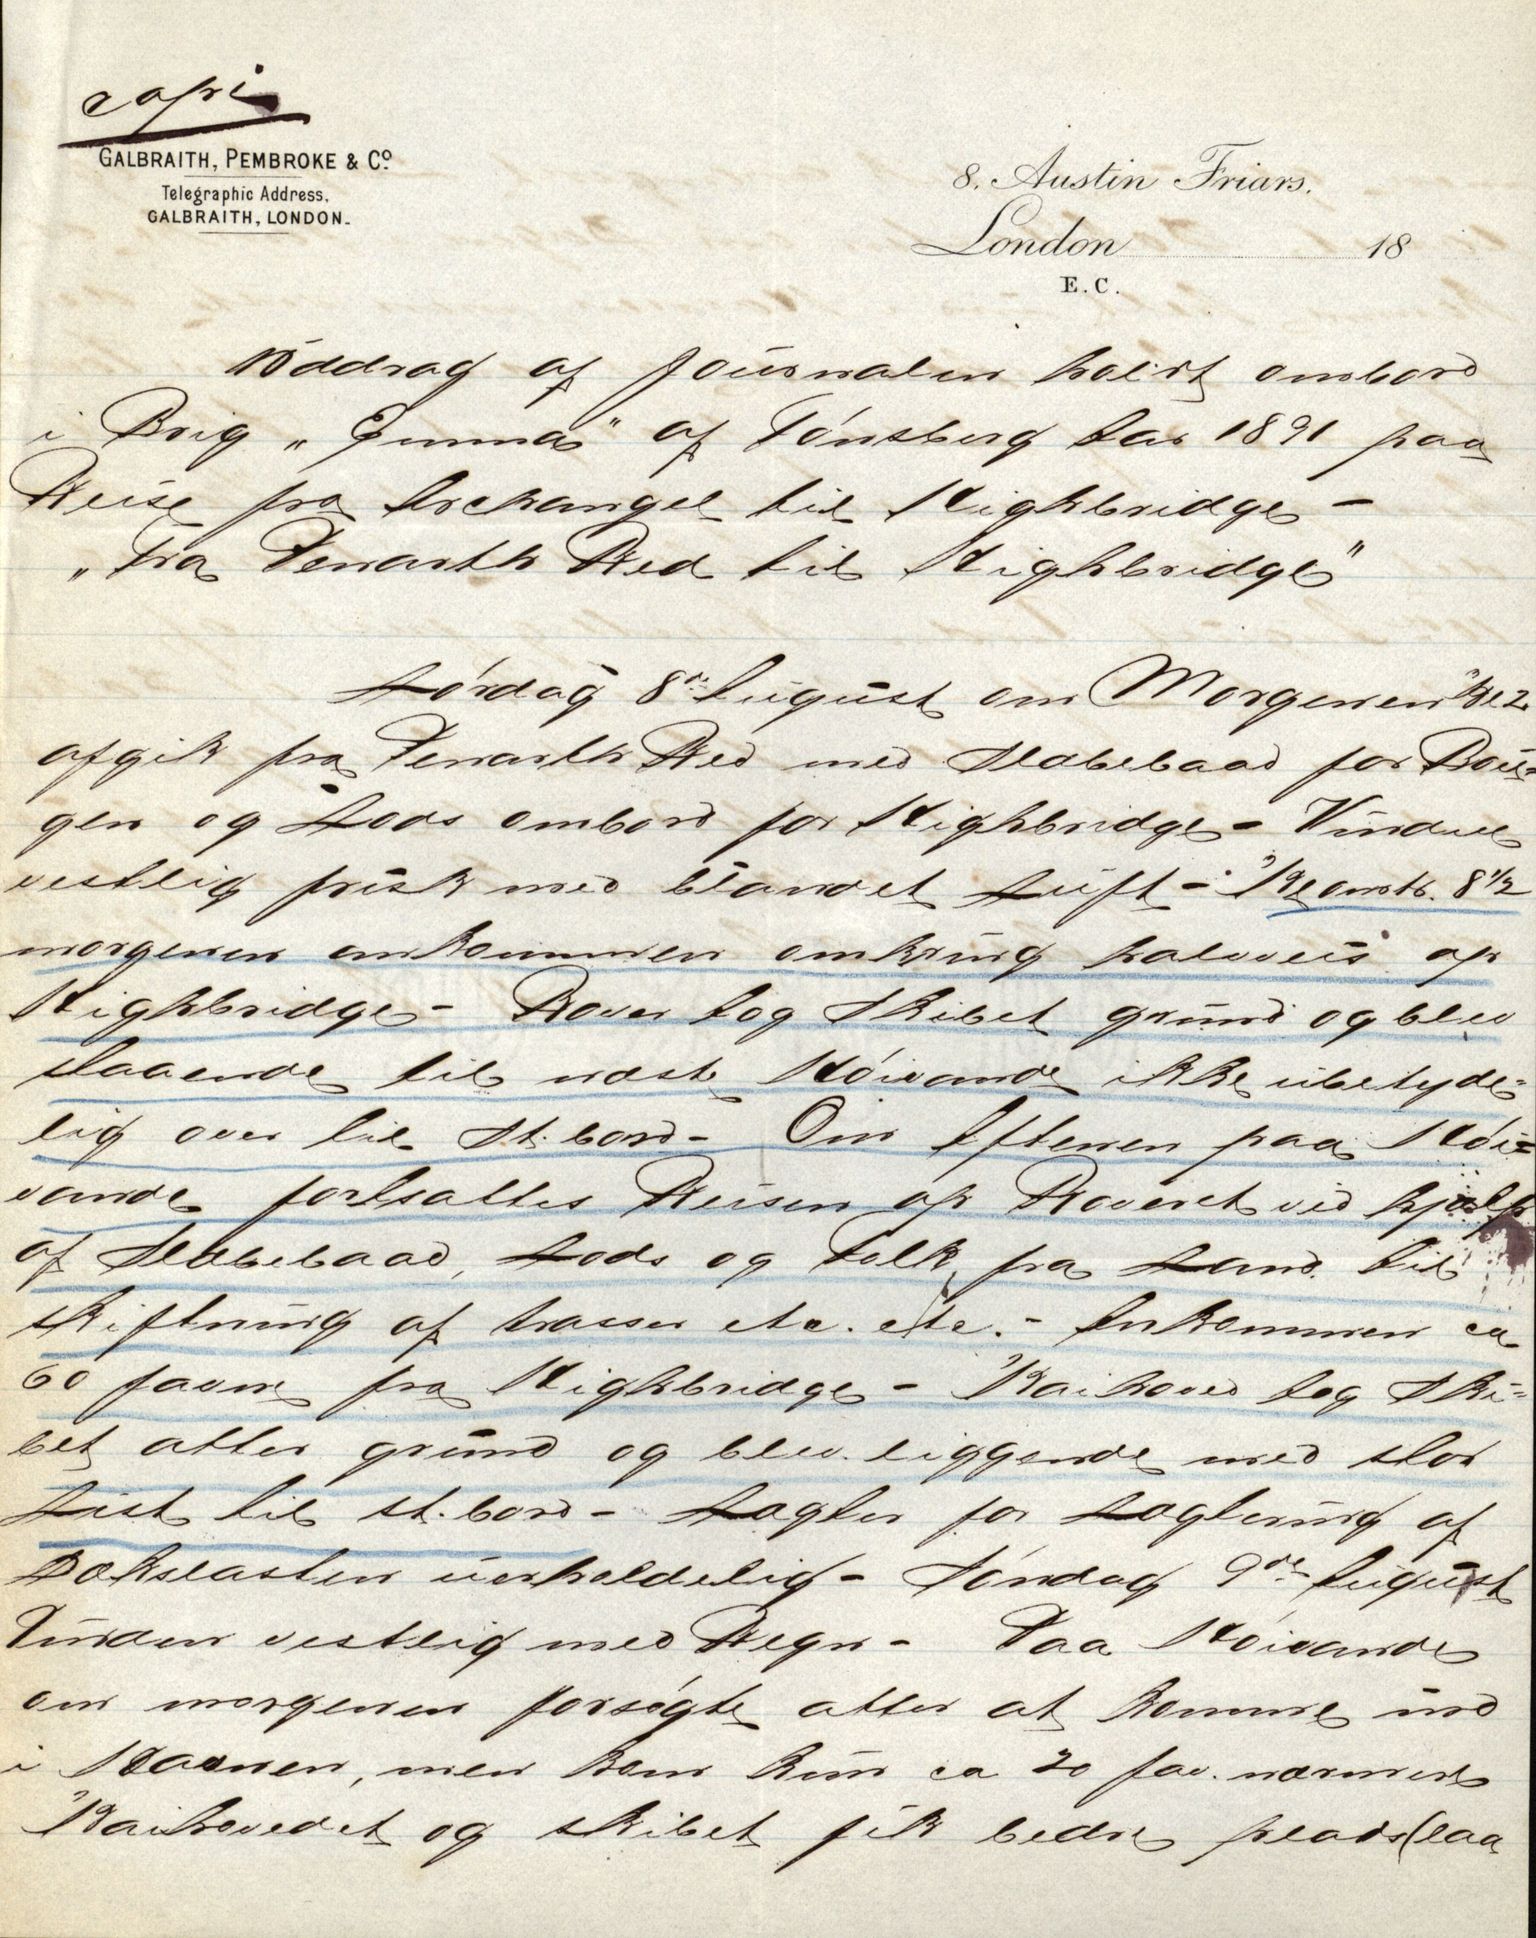 copi
GALBRAITH, PEMBROKE & Cº
Telegraphic Address,
GALBRAITH, LONDON.
8, Austin Friars.
London 18
E.C.
Uddrag af Journalen holdt ombord
i Brig „Gunnas" af Tønsberg Aar 1891 paa
Reise fra Archangel til Highbridge -
„Fra Penarth Red til Highbridge"
Lørdag 8de August om Morgenen Kl 2
afgik fra Penarth Red med Slæbebaad for Bou-
gen og Lods ombord for Highbridge - Vinden
vestlig frisk med blandet Luft - Kl omtr. 8½
morgenen ankommen omkring halvveis op
Highbridge - River tog Skibet grund og blev
staaende til næste Høivande ikke ubetyde-
lig over til St.bord - Om Aftenen paa Høi-
vande fortsattes Reisen op Riveret ved hjælp
af Slæbebaad, Lods og Folk fra Land til
skiftning af trosser etc. etc. - Ankommen ca
60 favne fra Highbridge - Kaihoved tog Ski-
bet atter grund og blev liggende med stor
List til st.bord - Lagter for Lagtering af
Dækslasten uerholdelig - Søndag 9de August
Vinden vestlig med Regn - Paa Høivande
om morgenen forsøgte atter at komme ind
i Havnen, men kom kun ca 20 fav. nærmere
Kaihovedet og skibet fik bedre plads (laa